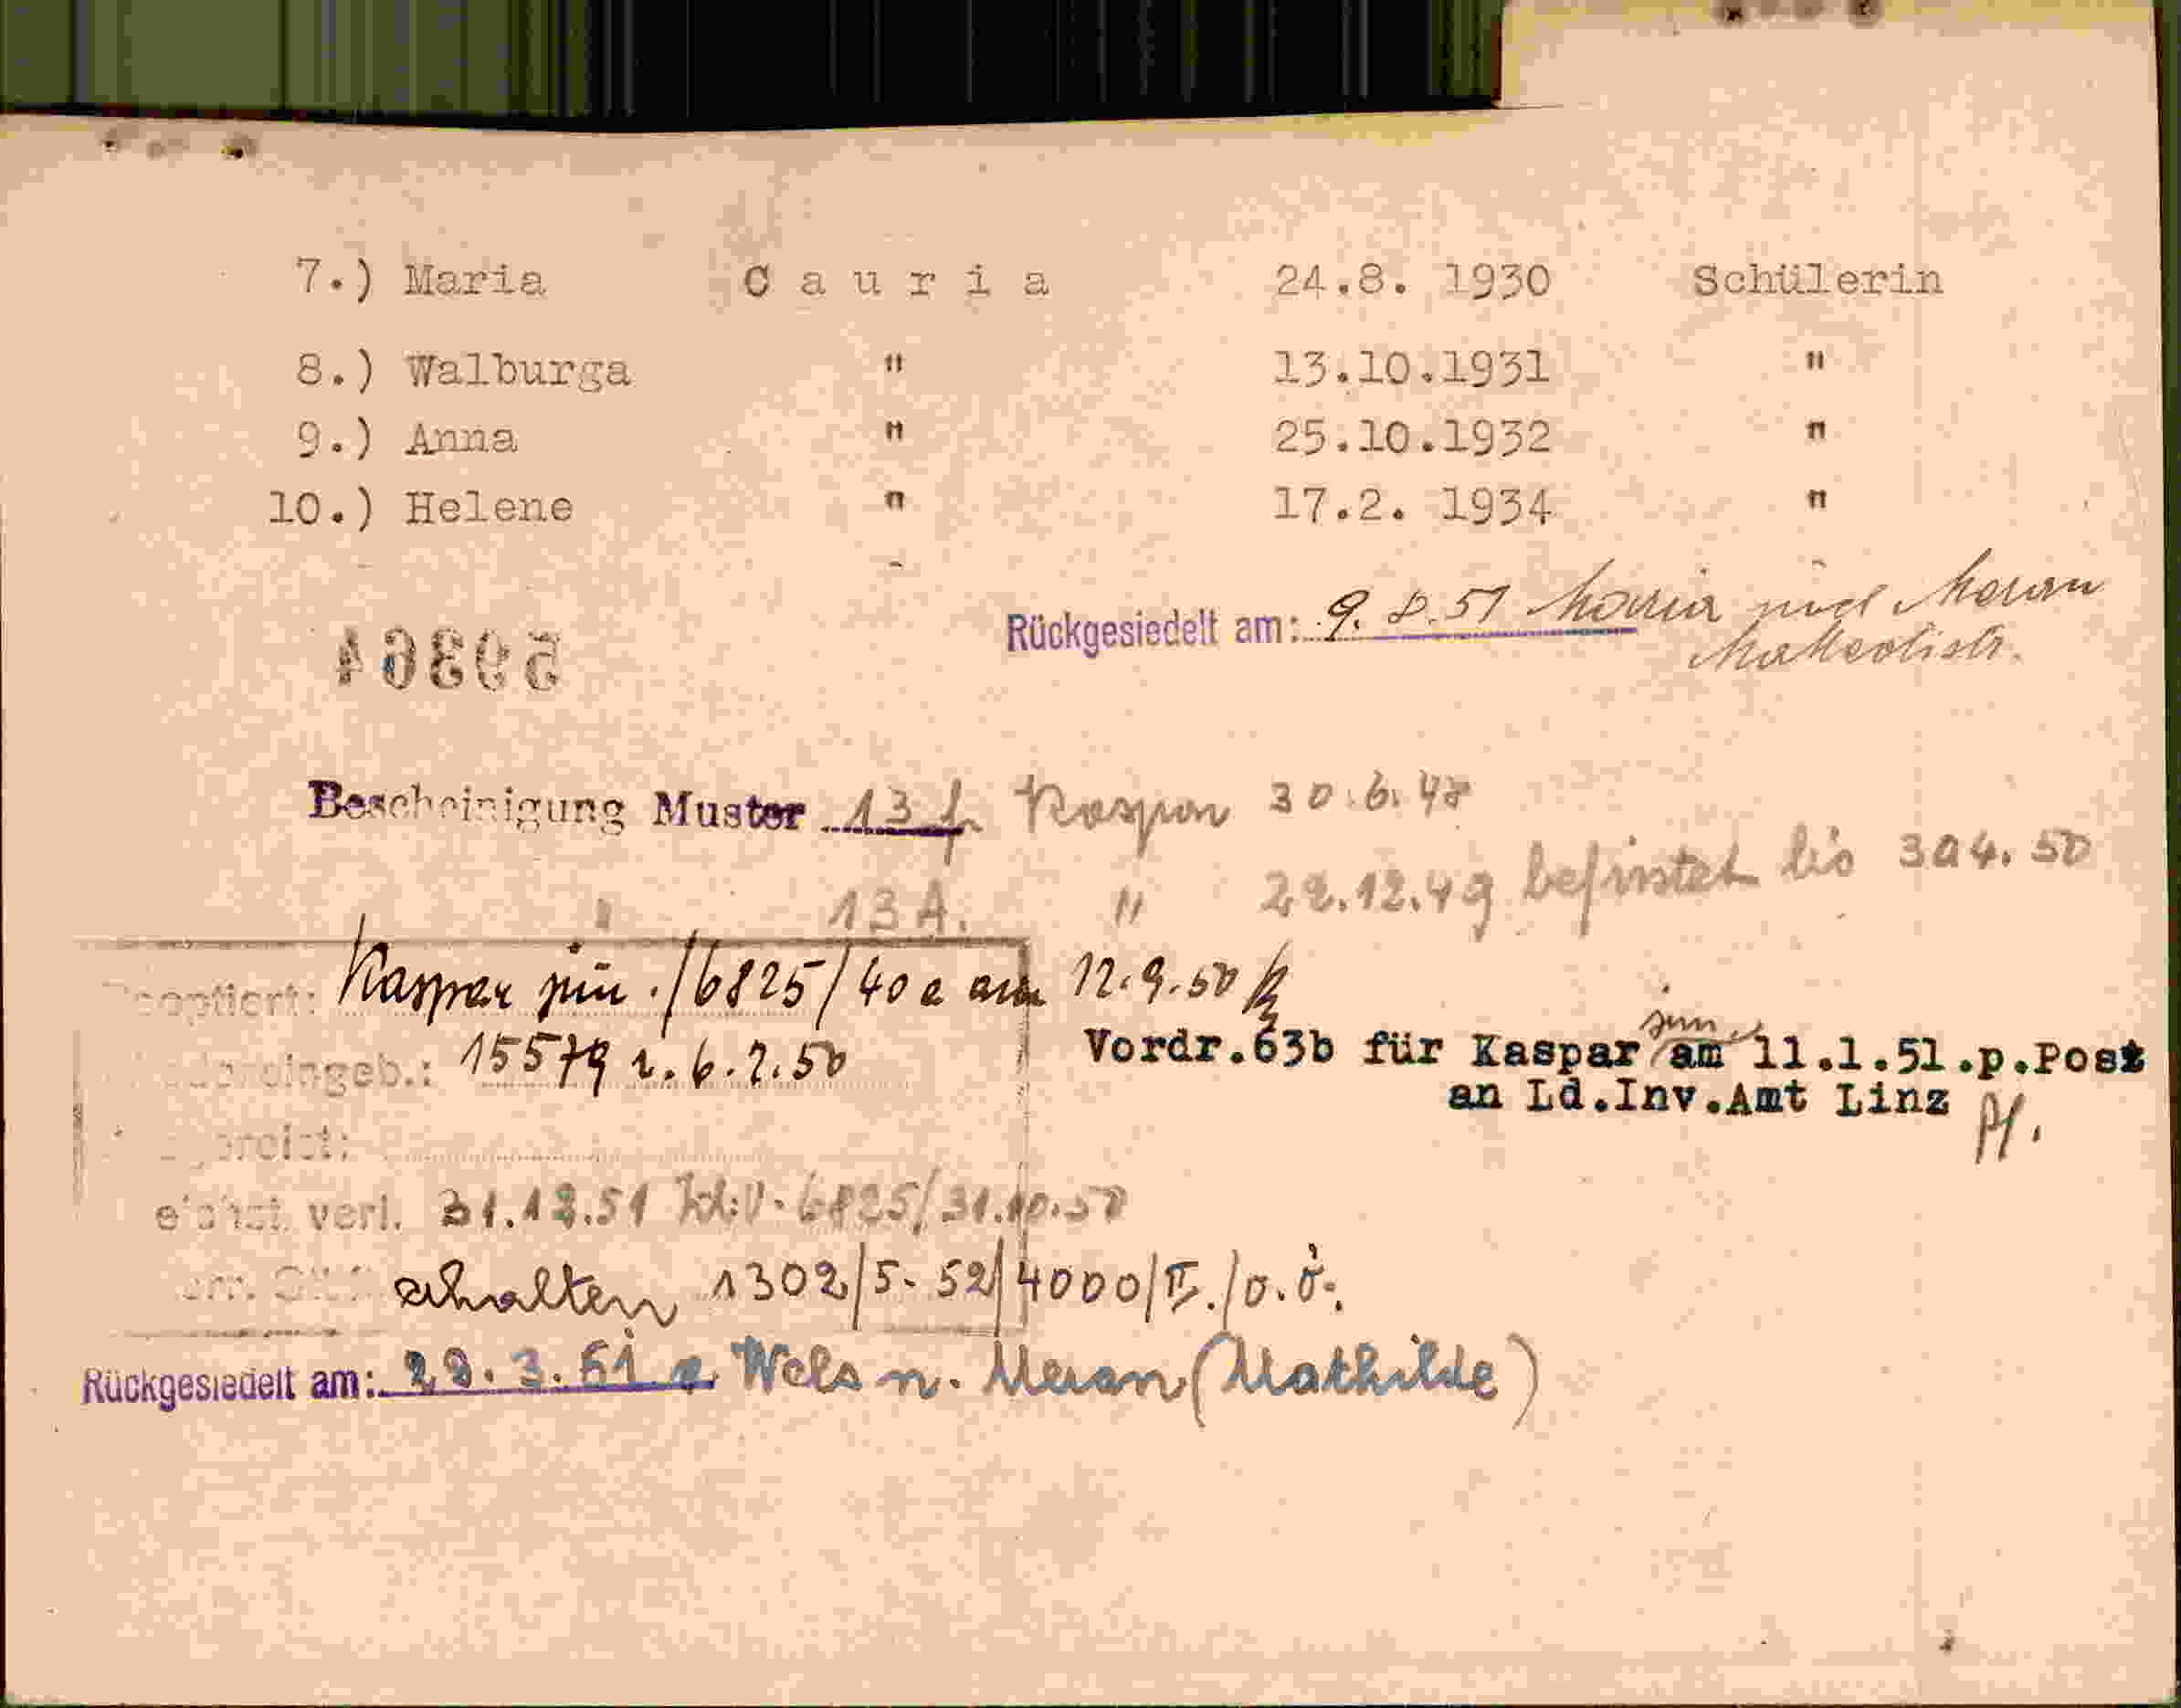 7.) Maria C a u r i a 24.8. 1930 Schülerin
8.) Walburga " 13.10.1931 "
9.) Anna " 25.10.1932 "
10.) Helene " 17.2. 1934 "
Rückgesiedelt am: 9.8.51 Maria Meran
Bescheinigung Muster 13 Kaspar 30.6.48
" 13 A. " 22.12.49 befristet bis 30.4.50
Kaspar jun. /6825/40 a am 12.9.50
15579 v. 6.7.50
Vordr.63b für Kaspar jun. am 11.1.51.p.Post
an Ld.Inv.Amt Linz
verl. 31.12.51 6825/31.10.50
erhalten 1302/5-52/4000/II./O.Ö.
Rückgesiedelt am: 22.3.61 Wels n. Meran (Mathilde)